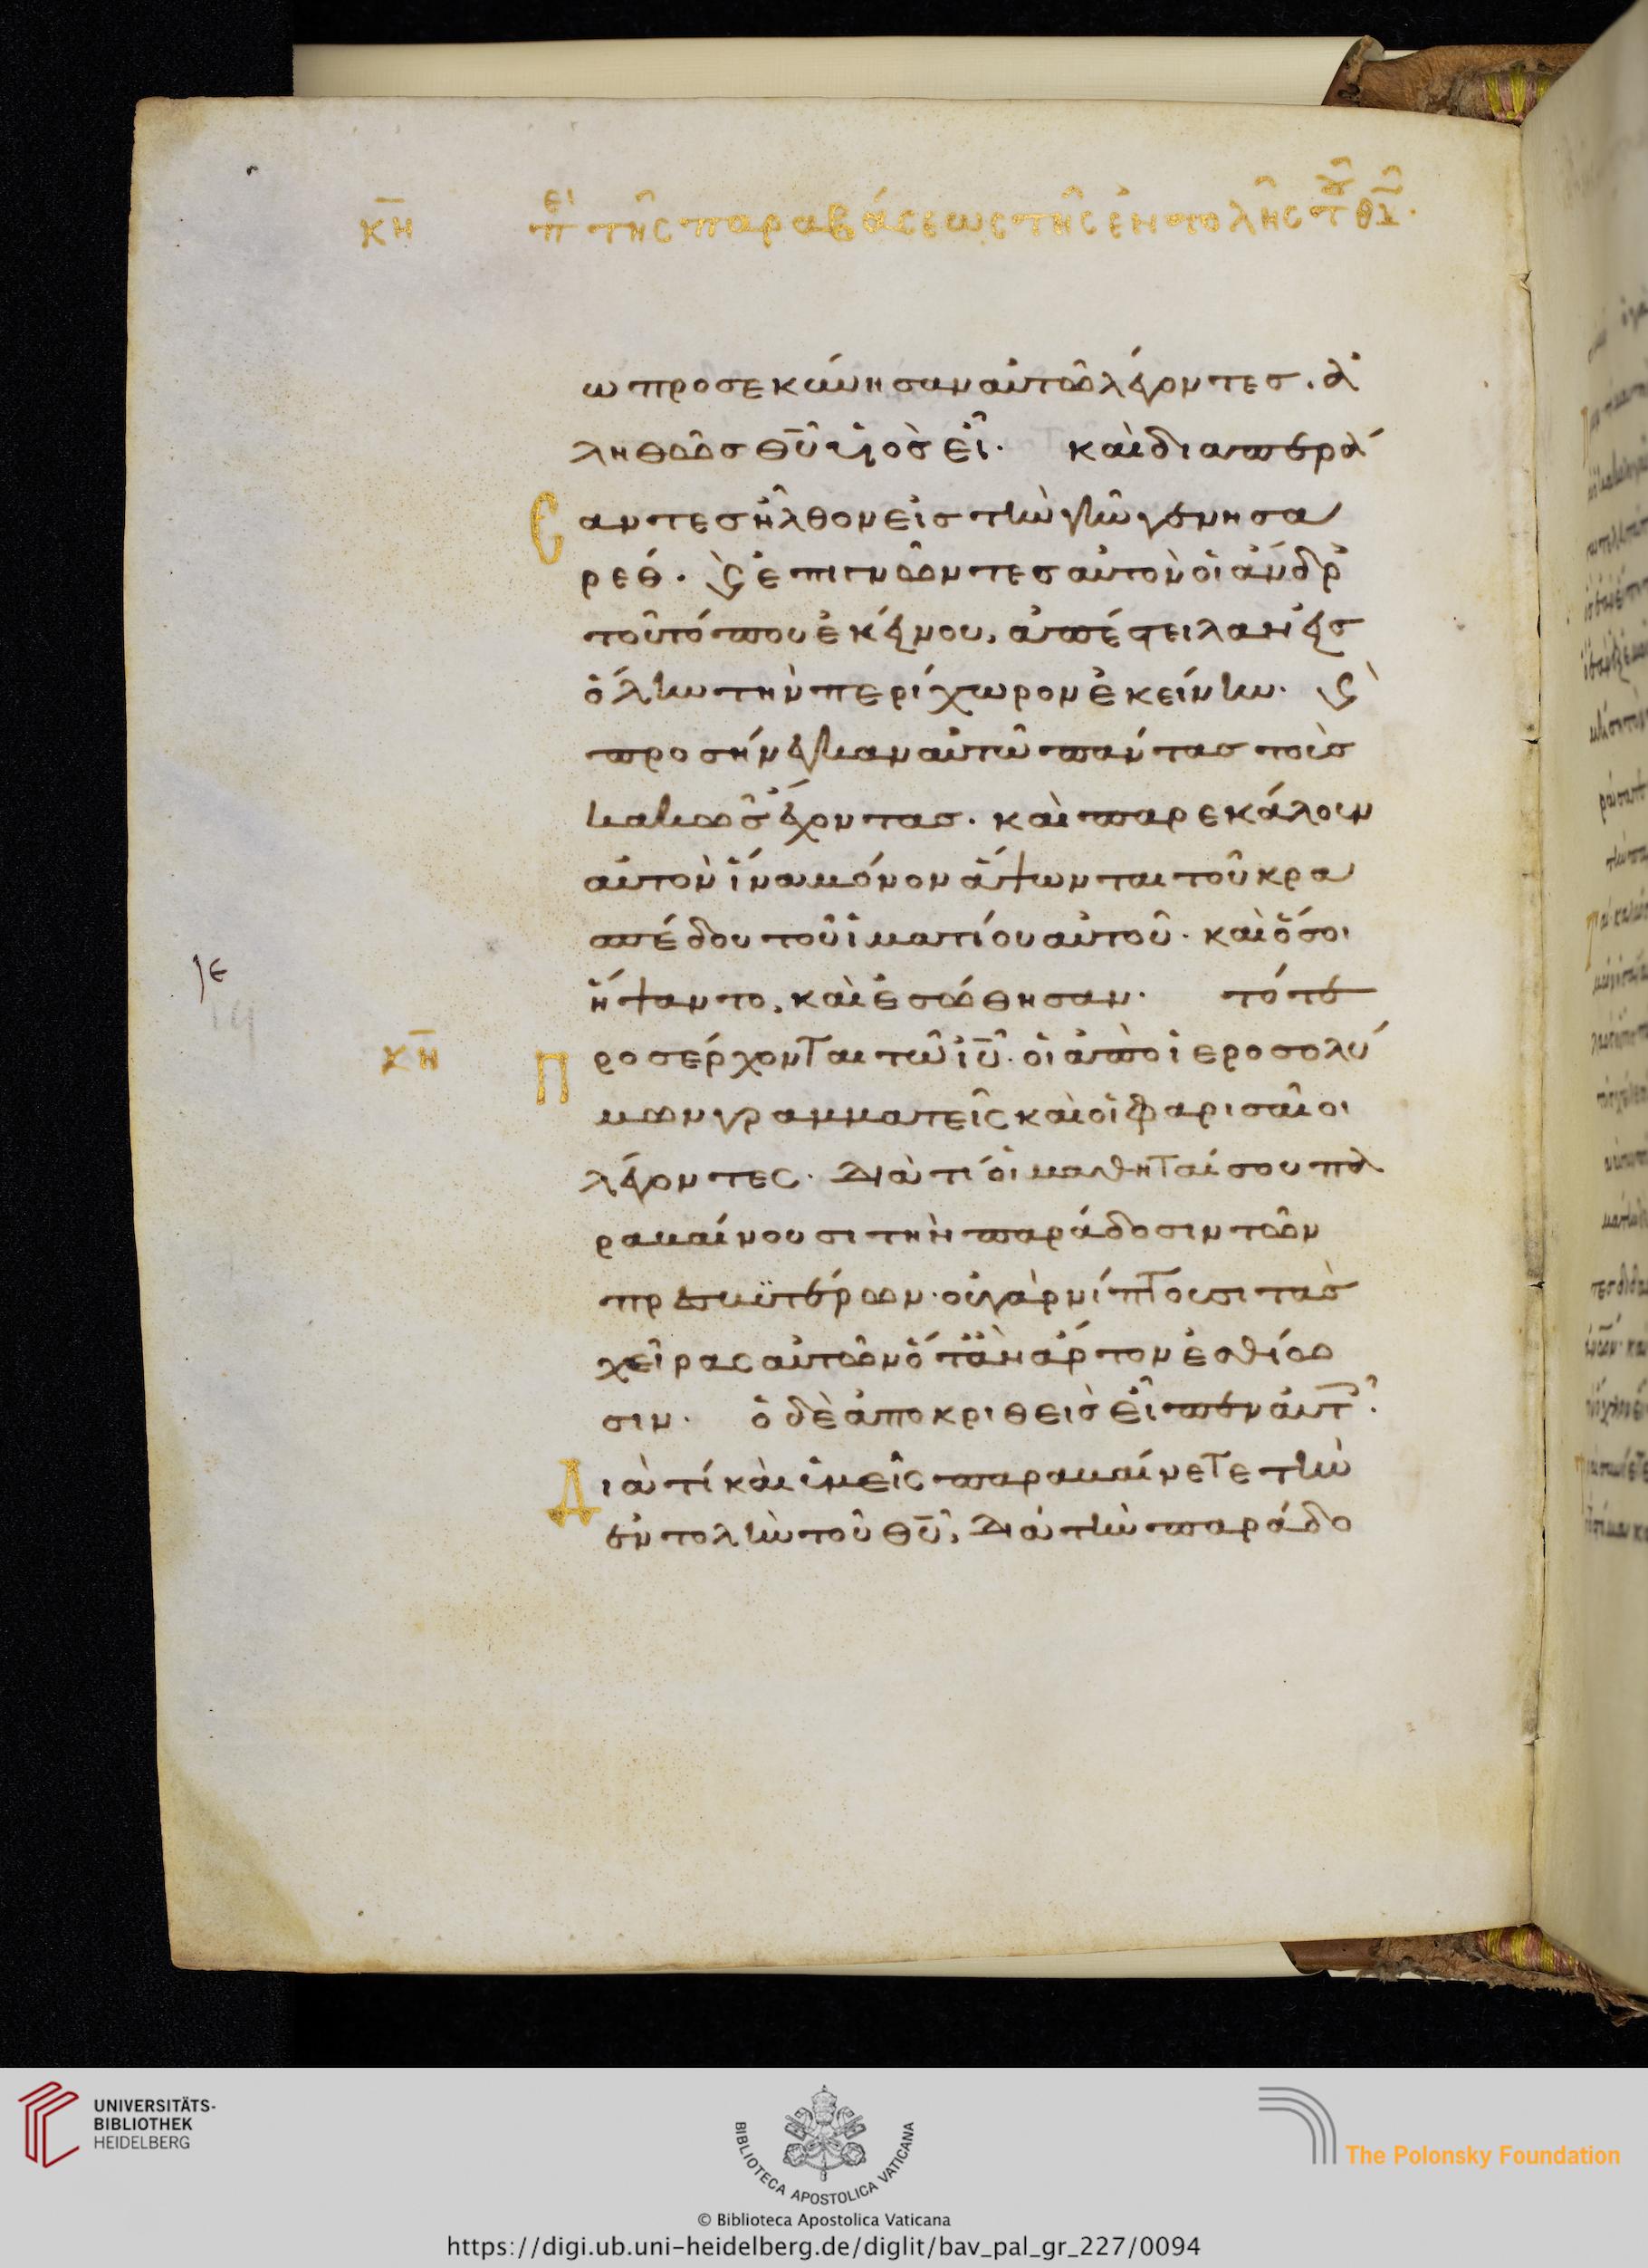 κη πει της παραβάσεως τῆς ἐντολῆς τοῦ θυ.
ω προσεκύνησαν αὐτῶ λέγοντες. ἀ
ληθῶσ θυ υἱὸσ εἶ. καὶ διαπερά
Ε αντεσ ἦλθον εἰσ τὴν γῆν γεννησα
ρεθ. ϗ ἐπιγνόντεσ αὐτὸν οἱ ἄνδρ
τοῦ τόπου ἐκείνου, ἀπέστειλαν εἰσ
ὅλην τὴν περίχωρον ἐκείνην. ϗ
προσήνεγκαν αὐτῶ πάντασ τοὺσ
κακῶσ ἔχοντασ. καὶ παρεκάλουν
αὐτὸν ἵνα μόνον ἅψωνται τοῦ κρα
σπέδου τοῦ ἱματίου αὐτοῦ. καὶ ὅσοι
ἥψαντο, καὶ ἐσώθησαν. τότε
ιε
κη Π ροσέρχονται τῶ ιυ. οἱ ἀπὸ ἱεροσολύ
μων γραμματεῖς καὶ οἱ φαρισαῖοι
λέγοντες. Διὰ τί οἱ μαθηταί σου πα
ραβαίνουσι τὴν παράδοσιν τῶν
πρεσβϋτέρων. οὐ γὰρ νίπτουσι τὰσ
χεῖρας αὐτῶν ὅτὰν ἄρτον ἐσθίω
σιν. ὁ δὲ ἀποκριθεὶσ εἶπεν αὐτ.
Δ ιὰ τί καὶ ὑμεῖς παραβαίνετε τὴν
ἐντολὴν τοῦ θυ, Διὰ τὴν παράδο
UNIVERSITÄTS-
BIBLIOTHEK
HEIDELBERG
BIBLIOTECA APOSTOLICA VATICANA
The Polonsky Foundation
© Biblioteca Apostolica Vaticana
https://digi.ub.uni-heidelberg.de/diglit/bav_pal_gr_227/0094